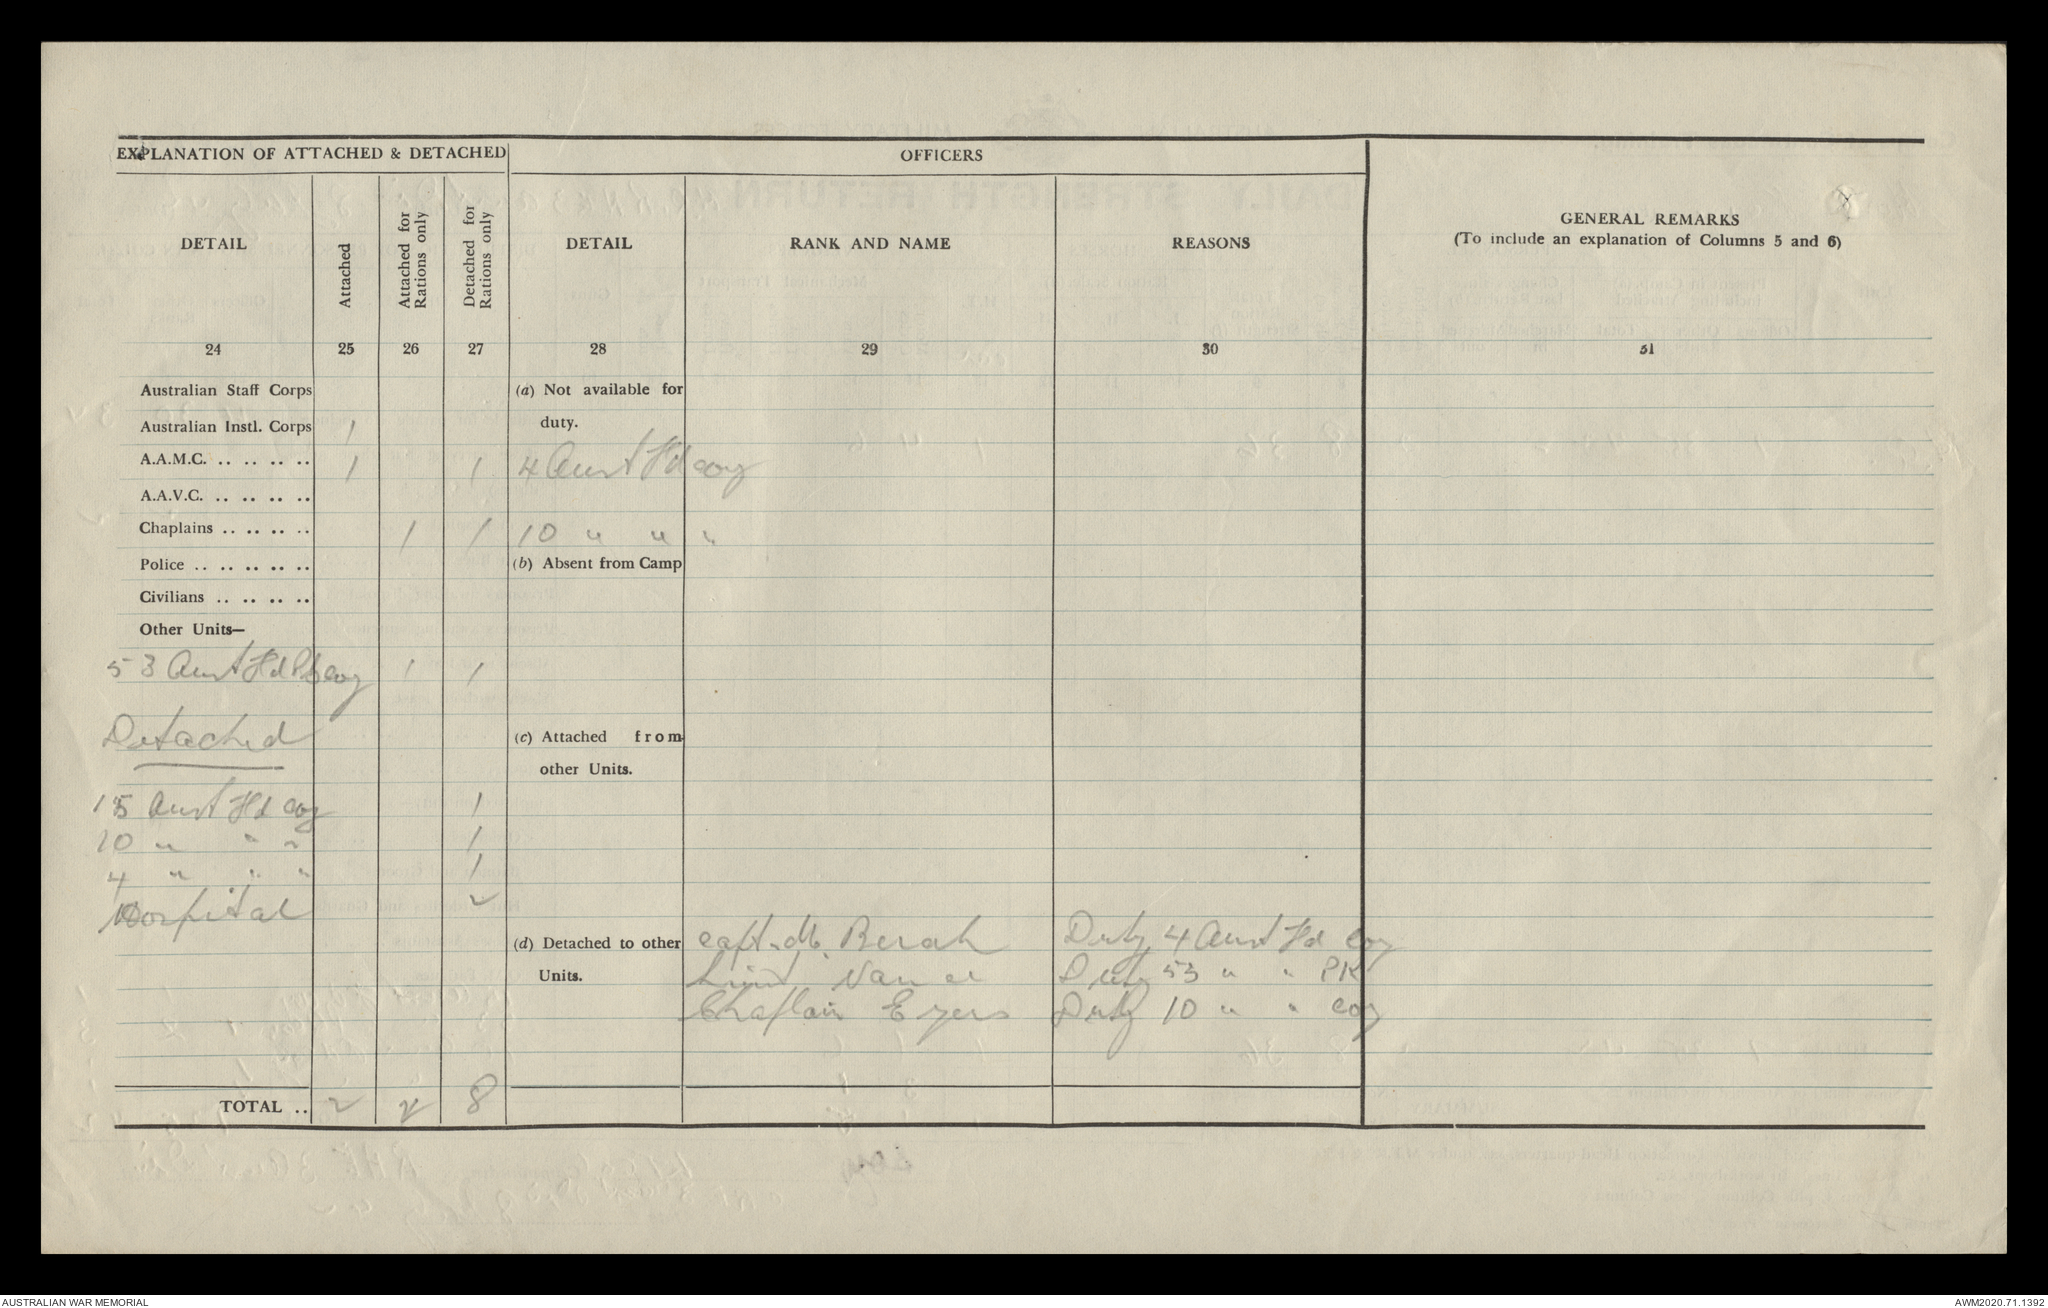 EXPLANATION OF ATTACHED & DETACHED
OFFICERS
GENERAL REMARKS
(To include an explanation of Columns 5 and 6)
DETAIL
Attached
Attached for Rations only
Detached for Rations only
DETAIL
RANK AND NAME
REASONS
24 25 26 27 28 29 30 31
Australian Staff Corps
(a) Not available for
duty.
Australian Instl. Corps 1
A.A.M.C. .. .. .. .. 1 1 4 Aust Fd coy
A.A.V.C. .. .. .. ..
Chaplains .. .. .. .. 1 1 10 " " "
Police .. .. .. .. ..
(b) Absent from Camp
Civilians .. .. .. ..
Other Units—
53 Aust Fd Pk coy 1 1
Detached
(c) Attached from
other Units.
15 Aust Fd coy 1
10 " " " 1
4 " " " 1
Hospital 2
(d) Detached to other
Units.
Capt. Berah Duty 4 Aust Fd Coy
Lieut Duty 53 " " PK
Chaplain Eyers Duty 10 " " coy
TOTAL .. 2 2 8
AUSTRALIAN WAR MEMORIAL
AWM2020.71.1392